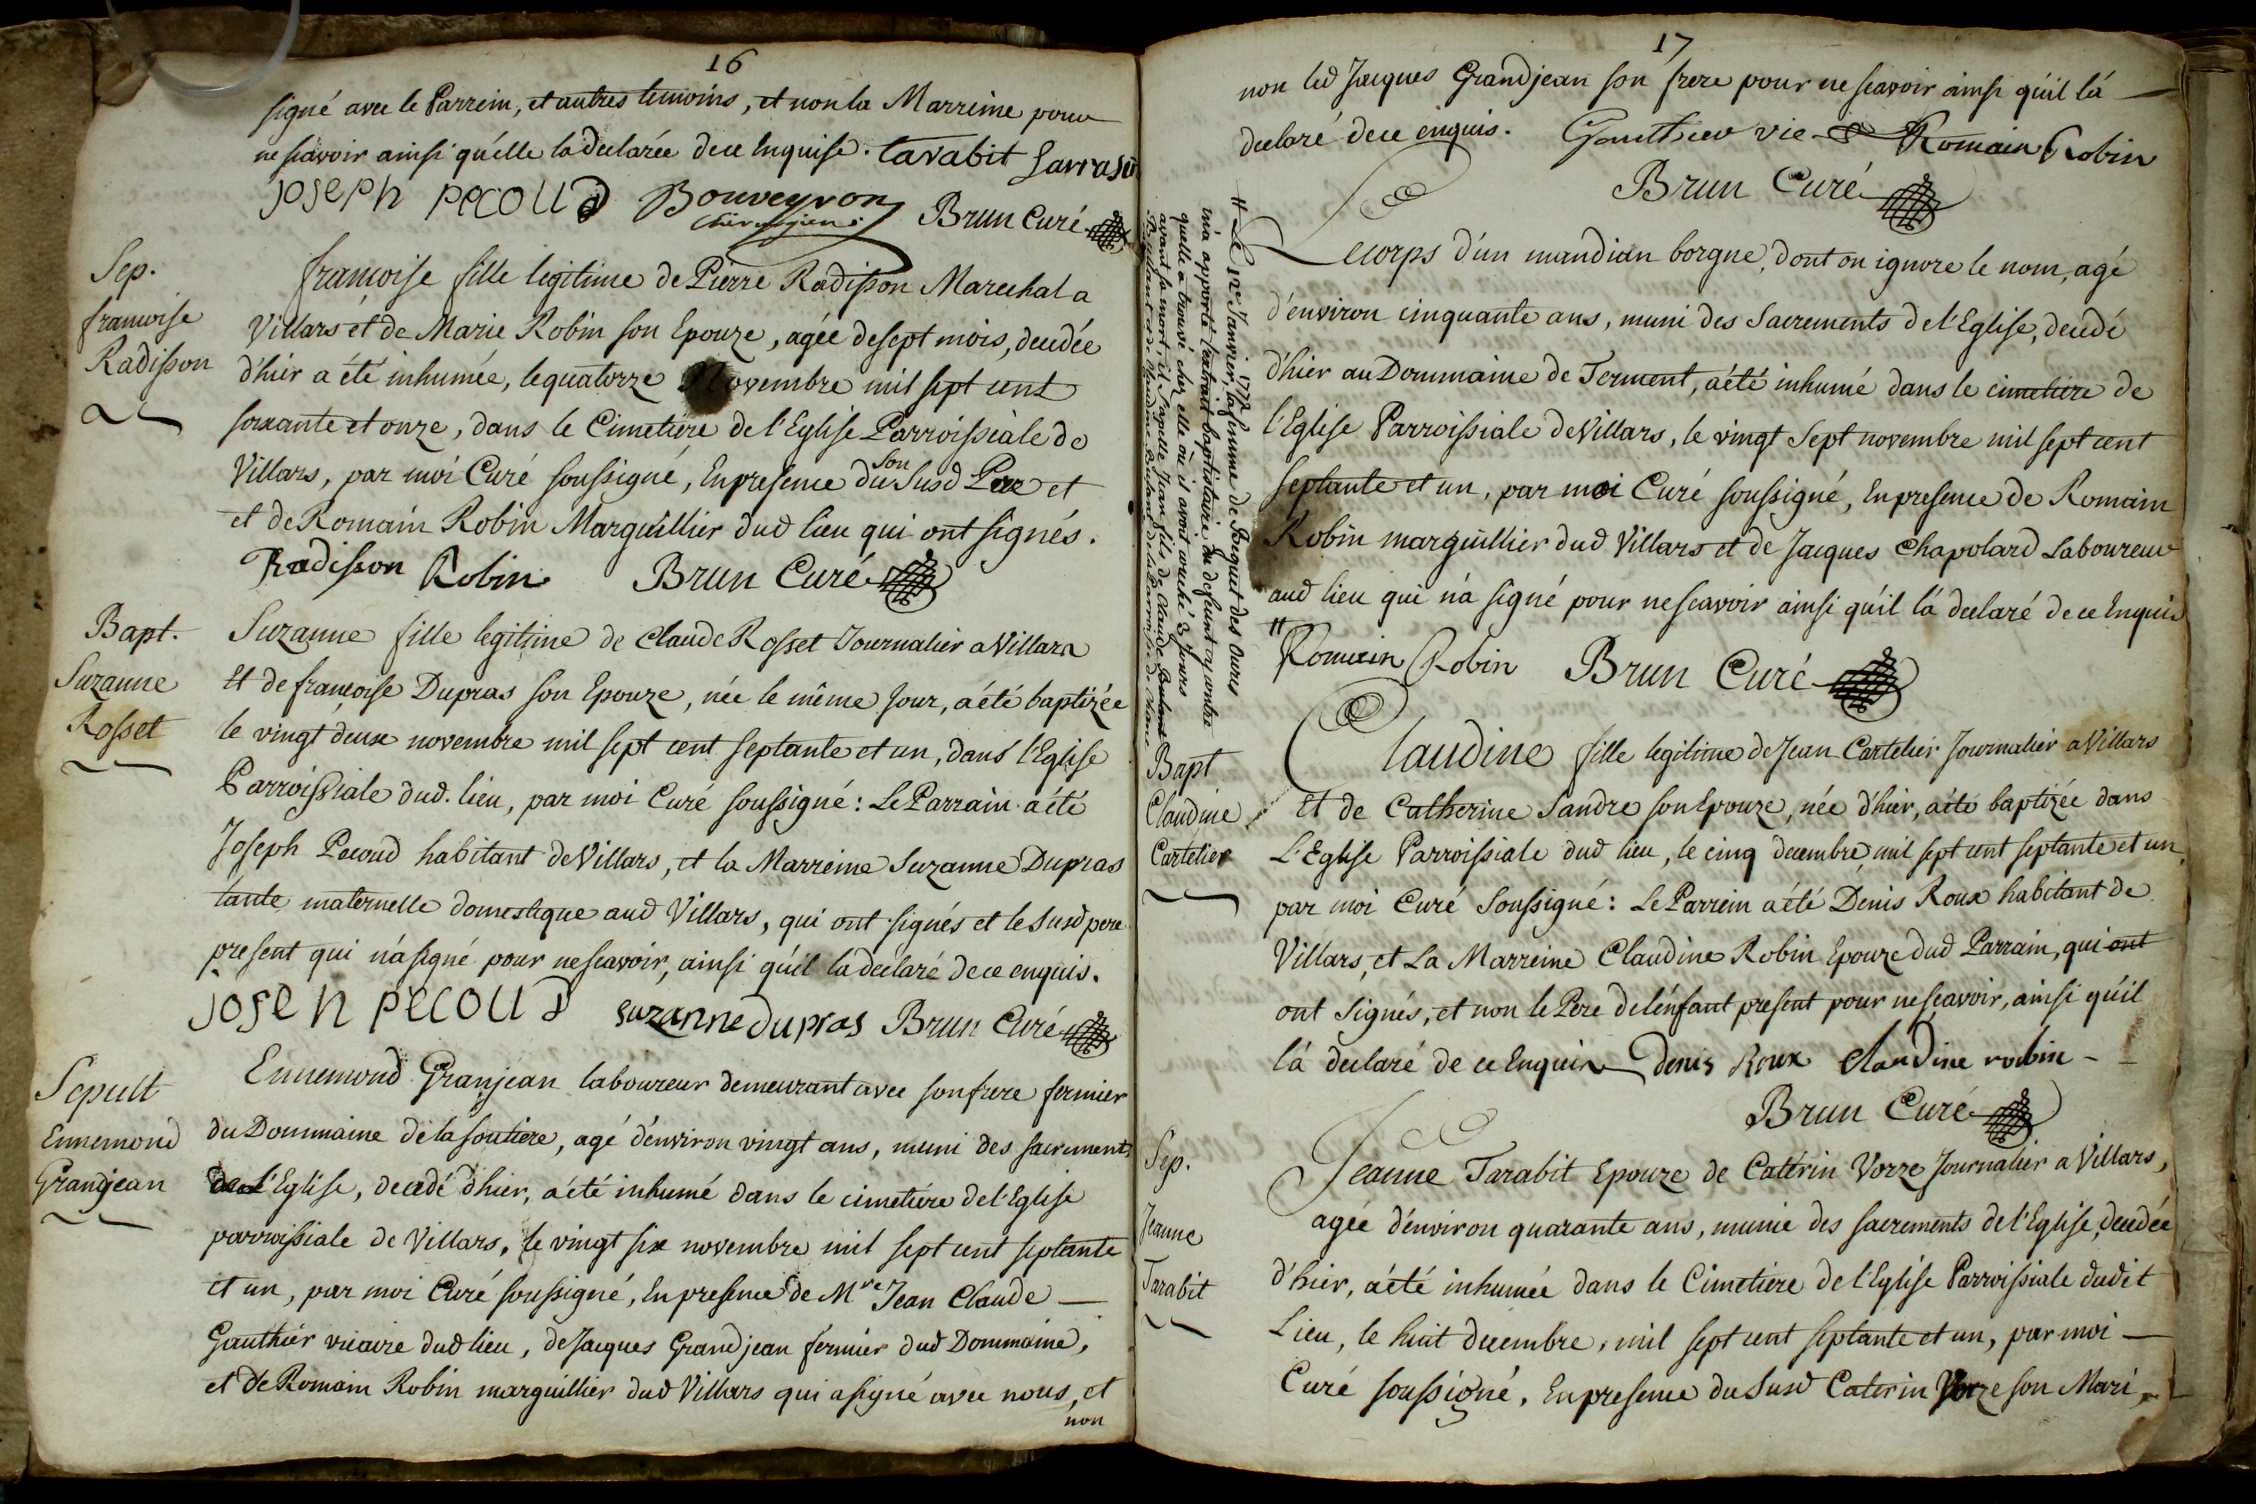 16
signé avec le Parrein, et autres temoins, et non la Marreine pour
ne scavoir ainsi qu'elle la declarée de ce Enquise. tarabit Sarrasin
joseph pecoud Bouveyron chirurgien Brun Curé
Sep.
francoise
Radisson
francoise fille legitime de Pierre Radisson Marechal a
Villars et de Marie Robin son Epouze, agée de sept mois, decedée
d'hier a été inhumée, le quatorze Novembre mil sept cent
soixante et onze, dans le Cimetiere de l'Eglise Parroissiale de
Villars, par moi Curé soussigné, En presence du son Susd Pere et
et de Romain Robin Marguillier dud lieu qui ont signés.
Radisson Robin Brun Curé
Bapt.
Suzanne
Rosset
Suzanne fille legitime de Claude Rosset Journalier a Villars
Et de francoise Dupras son Epouze, née le même jour, a été baptizée
le vingt deux novembre mil sept cent septante et un, dans l'Eglise
Parroissiale dud. lieu, par moi Curé soussigné: Le Parrain a été
Joseph Pecoud habitant de Villars, et la Marreine Suzanne Dupras
tante maternelle domestique aud Villars, qui ont signés et le susd pere
present qui n'a signé pour ne scavoir, ainsi qu'il la declaré de ce enquis.
joseh pecoud suzanne dupras Brun Curé
Sepult
Ennemond
Grandjean
Ennemond Granjean laboureur demeurant avec son frere fermier
du Dommaine de la soutiere, agé d'environ vingt ans, muni des sacrements
de l'Eglise, decedé d'hier, a été inhumé dans le cimetiére de l'Eglise
parroissiale de Villars, le vingt six novembre mil sept cent septante
et un, par moi Curé soussigné, En presence de Mre Jean Claude
Gauthier vicaire dud lieu, de Jacques Grandjean fermier dud Dommaine,
et de Romain Robin marguillier dud Villars qui a signé avec nous, et
non
17
non led Jacques Grandjean son frere pour ne scavoir ainsi qu'il l'a
declaré de ce enquis. Gauthier vic Romain Robin
Brun Curé
# Le 12e Janvier 1772 la femme de Jacquet des Ouris
m'a apporté l'extrait baptistaire du defunt cy contre
quelle a trouvé chez elle où il avoit couché 3 jours
avant sa mort, il s'apelle Jean fils de Claude
Lecorps d'un mandian borgne, dont on ignore le nom, agé
d'environ cinquante ans, muni des Sacrements de l'Eglise, decedé
d'hier au Dommaine de Terment, a été inhumé dans le cimetiere de
l'Eglise Parroissiale de Villars, le vingt Sept novembre mil sept cent
septante et un, par moi Curé soussigné, En presence de Romain
Robin marguillier dud Villars et de Jacques Chapolard Laboureur
aud lieu qui n'a signé pour ne scavoir ainsi qu'il l'a declaré de ce Enquis
#
Romain Robin Brun Curé
Bapt
Claudine
Cartelier
Claudine fille legitime de Jean Cartelier Journalier a Villars
Et de Catherine Sandre son Epouze, née d'hier, a été baptizée dans
L'Eglise Parroissiale dud lieu, le cinq decembre mil sept cent septante et un,
par moi Curé Soussigné: Le Parrein a été Denis Roux habitant de
Villars, et La Marreine Claudine Robin Epouze dud Parrain, qui ont
ont signés, et non le Pere de l'enfant present pour ne scavoir, ainsi qu'il
l'a declaré de ce Enquis Denis Roux Claudine robin
Brun Curé
Sep.
Jeanne
Tarabit
Jeanne Tarabit Epouze de Caterin Vorze Journalier a Villars,
agée d'environ quarante ans, munie des sacrements de l'Eglise, decedée
d'hier, a été inhumée dans le Cimetiere de l'Eglise Parroissiale dudit
Lieu, le huit decembre, mil sept cent septante et un, par moi
Curé soussigné, En presence du Susd Caterin Vorze son Mari,